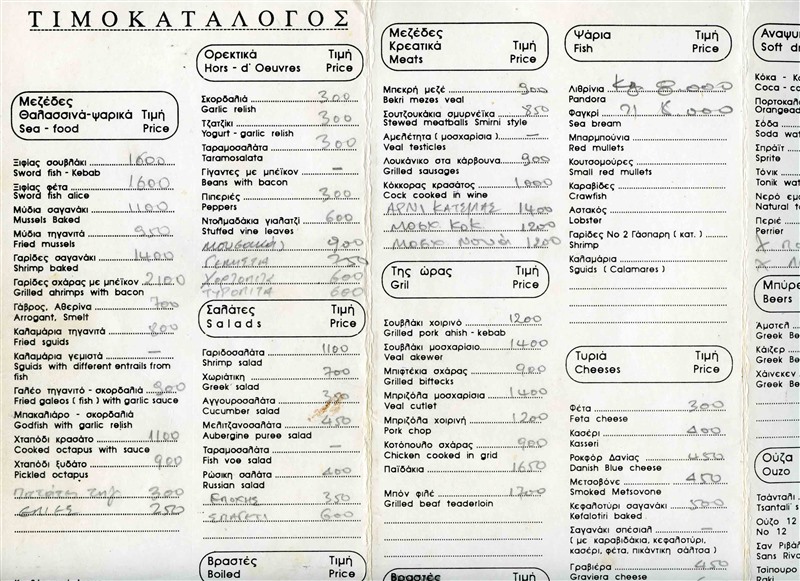 ΤΙΜΟΚΑΤΑΛΟΓΟΣ
Μεζέδες
Θαλασσινά-ψαρικά Τιμή
Sea - food Price
Ξιφίας σουβλάκι 1600
Sword fish - Kebab
Ξιφίας φέτα 1600
Sword fish alice
Μύδια σαγανάκι 1100
Mussels Baked
Μύδια τηγανιτά 900
Fried mussels
Γαρίδες σαγανάκι 1400
Shrimp baked
Γαρίδες σχάρας με μπέϊκον 2100
Grilled ahrimps with bacon
Γάβρος, Αθερίνα 700
Arrogant, Smelt
Καλαμάρια τηγανιτά 800
Fried sguids
Καλαμάρια γεμιστά —
Sguids with different entrails from
fish
Γαλέο τηγανιτό - σκορδαλιά 900
Fried galeos ( fish ) with garlic sauce
Μπακαλιάρο - σκορδαλιά
Godfish with garlic relish
Χταπόδι κρασάτο 1100
Cooked octapus with sauce
Χταπόδι ξυδάτο 900
Pickled octapus
300
250
Ορεκτικά Τιμή
Hors - d' Oeuvres Price
Σκορδαλιά 300
Garlic relish
Τζατζίκι 300
Yogurt - garlic relish
Ταραμοσαλάτα 300
Taramosalata
Γίγαντες με μπέϊκον —
Beans with bacon
Πιπεριές 300
Peppers
Ντολμαδάκια γιαλατζί 600
Stuffed vine leaves
ΜΟΥΣΑΚΑΣ 900
ΓΕΜΙΣΤΑ
ΧΟΡΤΟΠΙΤΑ 600
ΤΥΡΟΠΙΤΑ 600
Σαλάτες Τιμή
Salads Price
Γαριδοσαλάτα 1100
Shrimp salad
Χωριάτικη 700
Greek salad
Αγγουροσαλάτα
Cucumber salad
Μελιτζανοσαλάτα 450
Aubergine puree salad
Ταραμοσαλάτα —
Fish voe salad
Ρώσικη σαλάτα 400
Russian salad
350
600
Βραστές Τιμή
Boiled Price
Μεζέδες
Κρεατικά Τιμή
Meats Price
Μπεκρή μεζέ 900
Bekri mezes veal
Σουτζουκάκια σμυρνέϊκα 850
Stewed meatballs Smirni style
Αμελήτητα ( μοσχαρίσια ) —
Veal testicles
Λουκάνικο στα κάρβουνα 900
Grilled sausages
Κόκκορας κρασάτος 1000
Cock cooked in wine
ΑΡΝΙ 1400
ΜΟΣΧ ΚΟΚ 1200
ΜΟΣΧ ΝΟΥΑ 1200
Της ώρας Τιμή
Gril Price
Σουβλάκι χοιρινό 1200
Grilled pork ahish - kebab
Σουβλάκι μοσχαρίσιο 1400
Veal akewer
Μπιφτέκια σχάρας 900
Grilled biftecks
Μπριζόλα μοσχαρίσια 1400
Veal cutlet
Μπριζόλα χοιρινή 1200
Pork chop
Κοτόπουλο σχάρας 900
Chicken cooked in grid
Παϊδάκια 1650
Μπόν φιλέ 1700
Grilled beaf teaderloin
Βραστές Τιμή
Ψάρια Τιμή
Fish Price
Λιθρίνια Kg 8.000
Pandora
Φαγκρί
Sea bream
Μπαρμπούνια
Red mullets
Κουτσομούρες
Small red mullets
Καραβίδες
Crawfish
Αστακός
Lobster
Γαρίδες Νο 2 Γάσπαρη ( κατ. )
Shrimp
Καλαμάρια
Sguids ( Calamares )
Τυριά Τιμή
Cheeses Price
Φέτα 300
Feta cheese
Κασέρι 400
Kasseri
Ροκφόρ Δανίας 450
Danish Blue cheese
Μετσοβόνε 450
Smoked Metsovone
Κεφαλοτύρι σαγανάκι 500
Kefalotiri baked
Σαγανάκι σπέσιαλ —
( με καραβιδάκια, κεφαλοτύρι,
κασέρι, φέτα, πικάντικη σάλτσα )
Γραβιέρα 450
Graviera cheese
Αναψυ
Soft dr
Κόκα - Κο
Coca - co
Πορτοκαλ
Orangead
Σόδα
Soda wat
Σπράϊτ
Sprite
Τόνικ
Tonik wat
Νερό εμφ
Natural to
Περιέ
Perrier
Μπύρε
Beers
Άμστελ
Greek Be
Κάιζερ
Greek Be
Χάινεκεν
Greek Be
Ούζα
Ouzo
Τσάνταλι
Tsantali s
Ούζο 12
No 12
Σαν Ριβάλ
Sans Riva
Τσίπουρο
Raki